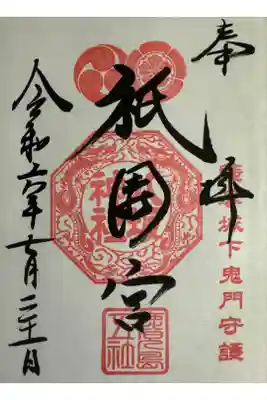 奉拝
城下鬼門守護
八坂
神社
祇園宮
令和六年七月二十一日